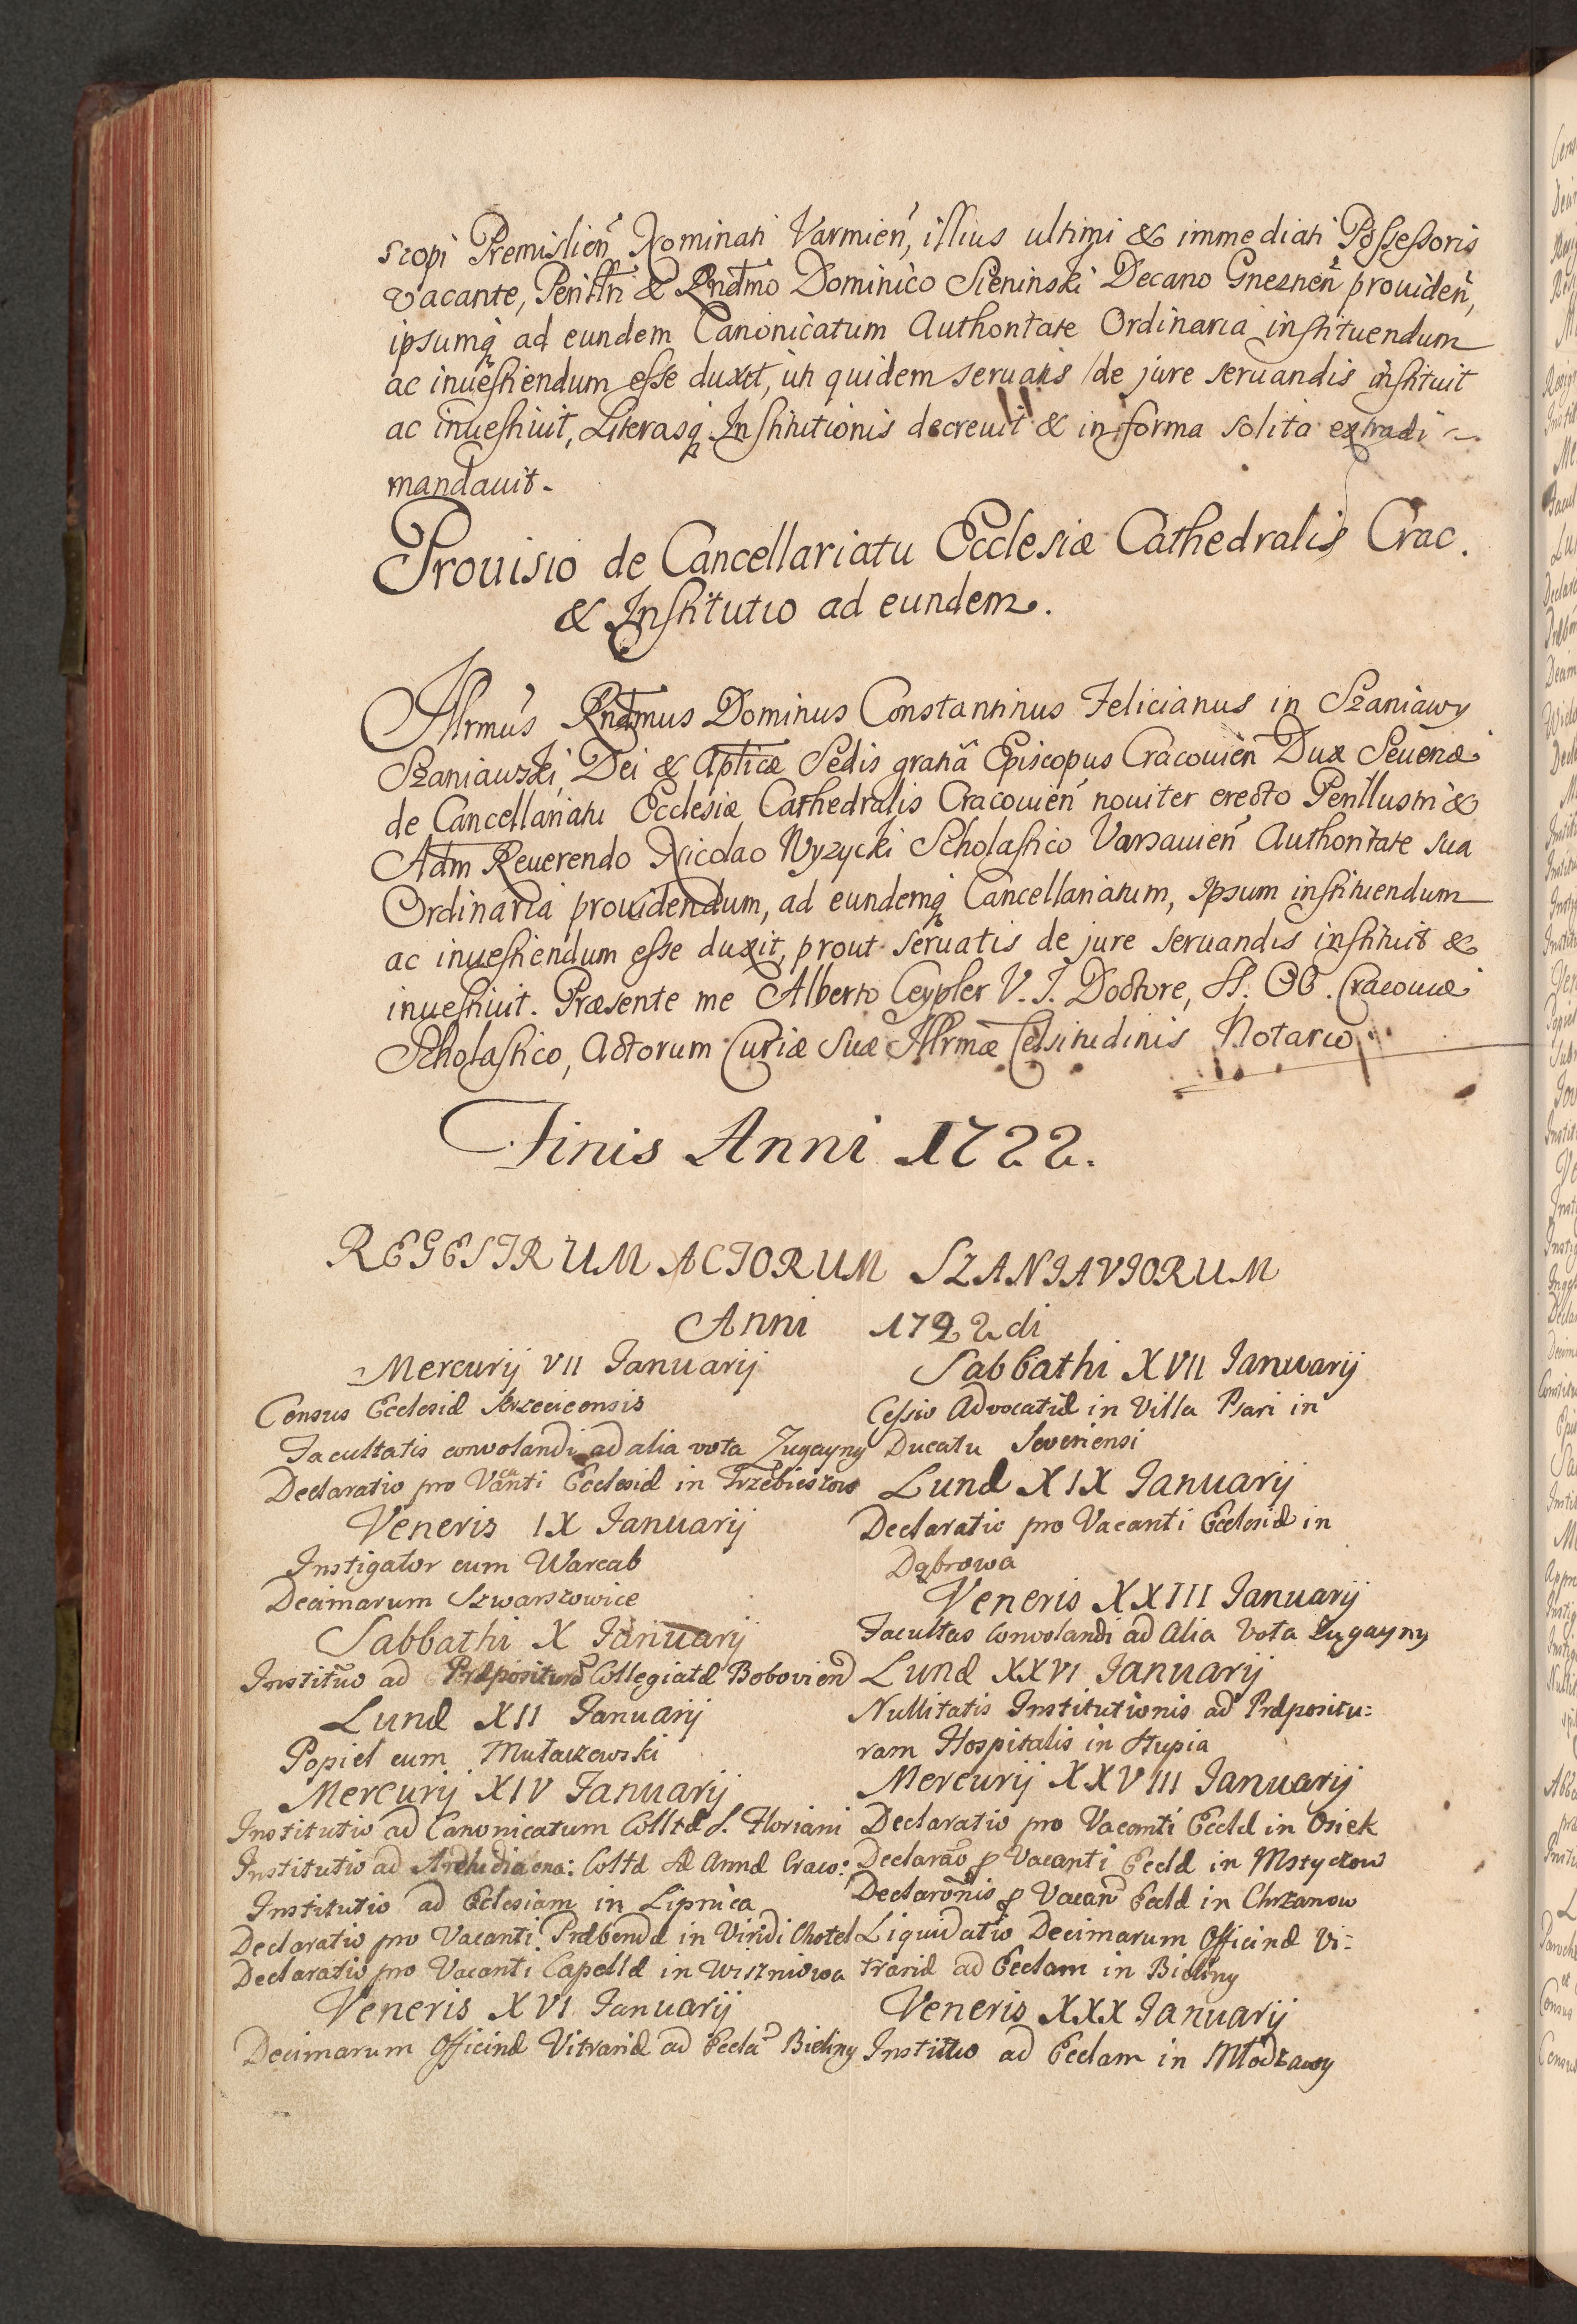 scopi Premislien̄ Nominati Varmien̄, illius ultimi & immediati Possessoris
vacante, Perilltri & Rndmo Dominico Sieninski Decano Gneznen̄ providen̄,
ipsumq ad eundem Canonicatum Authoritate Ordinaria instituendum
ac inuestiendum esse duxit, uti quidem seruatis de jure seruandis instituit
ac inuestiuit, Literasq Institutionis decreuit & in forma solita extradi
mandauit.
Prouisio de Cancellariatu Ecclesiæ Cathedralis Crac.
& Institutio ad eundem.
Illrmus Rndmus Dominus Constantinus Felicianus in Szaniawy
Szaniawski, Dei & Aplicæ Sedis gratia Episcopus Cracouien̄ Dux Seueriæ
de Cancellariatu Ecclesiæ Cathedralis Cracouien̄ nouiter erecto Perillustri &
Adm Reuerendo Nicolao Wyzycki Scholastico Varsauien̄ Authoritate sua
Ordinaria prouidendum, ad eundemq Cancellariatum, Ipsum instituendum
ac inuestiendum esse duxit, prout seruatis de jure seruandis instituit &
inuestiuit. Præsente me Alberto Ceypler V. J. Doctore, SS. OO. Cracouiæ
Scholastico, Actorum Curiæ Suæ Illrmæ Celsitudinis Notario
Finis Anni 1722.
REGESTRUM ACTORUM SZANIAVIORUM
Anni 1722di
Mercurij VII Januarij
Census Ecclesiæ
Facultatis convolandi ad alia vota Zugayny
Declaratio pro Vacanti Ecclesiæ in Trzebieszow
Veneris IX Januarij
Instigator cum Warcab
Decimarum Szwarszowice
Sabbathi X Januarij
Institūo ad Præposituram Collegiatæ Bobovien
Lunæ XII Januarij
Popiel cum Mułaczewski
Mercurij XIV Januarij
Institutio ad Canonicatum Colltæ S. Floriani
Institutio ad Archidiacona: Coltæ Annæ Craco:
Institutio ad Eclesiam in Lipnica
Declaratio pro Vacanti Præbendæ in Viridi Chotel
Declaratio pro Vacanti Capellæ in Wiszniowa
Veneris XVI Januarij
Decimarum Officinæ Vitrariæ ad Eccla Bieliny
Sabbathi XVII Januarij
Cessio Advocatiæ in Villa Psari in
Ducatu Severiensi
Lunæ XIX Januarij
Declaratio pro Vacanti Ecclesiæ in
Dąbrowa
Veneris XXIII Januarij
Facultas convolandi ad Alia Vota Zugayny
Lunæ XXVI Januarij
Nullitatis Institutionis ad Præpositu=
ram Hospitalis in Słupia
Mercurij XXVIII Januarij
Declaratio pro Vacanti Eccleæ in Osiek
Declarāo p Vacanti Eccleæ in Mstyczow
Declarōnis p Vacan Eccleæ in Chrzanow
Liquidatio Decimarum Officinæ Vi=
trariæ ad Ecclam in Bieliny
Veneris XXX Januarij
Institūo ad Ecclam in Młodzawy